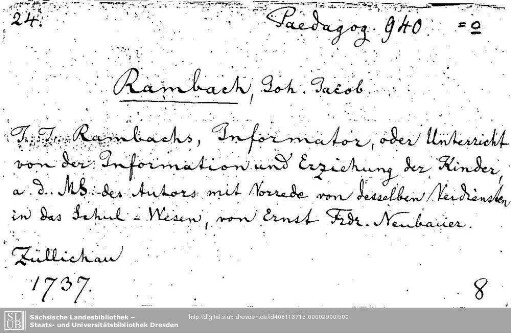 24.
Paedagog. 940 = o
Rambach, Joh. Jacob.
J. J. Rambachs, Informator, oder Unterricht
von der Information und Erziehung der Kinder,
a. d. MS. des Autors mit Vorrede von desselben Verdiensten
in das Schul-Wesen, von Ernst Frdr. Neubauer.
Züllichau
1737.
8
SLUB
Sächsische Landesbibliothek –
Staats- und Universitätsbibliothek Dresden